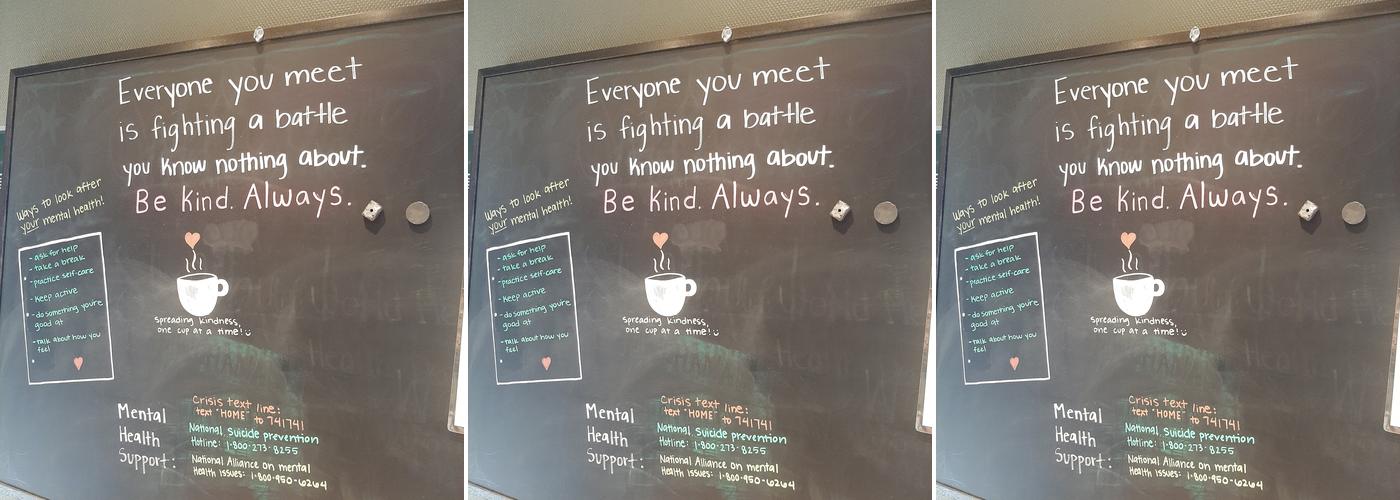 Everyone you meet
is fighting a battle
you know nothing about.
Be kind. Always.
Ways to look after
your mental health!
- ask for help
- take a break
- practice self-care
- Keep active
- do something you're
good at
- talk about how you
feel
Spreading kindness,
one cup at a time!
Mental
Health
Support:
Crisis text line:
text "HOME" to 741741
National Suicide prevention
Hotline: 1-800-273-8255
National Alliance on mental
Health issues: 1-800-950-6264
Everyone you meet
is fighting a battle
you know nothing about.
Be kind. Always.
Ways to look after
your mental health!
- ask for help
- take a break
- practice self-care
- Keep active
- do something you're
good at
- talk about how you
feel
Spreading kindness,
one cup at a time!
Mental
Health
Support:
Crisis text line:
text "HOME" to 741741
National Suicide prevention
Hotline: 1-800-273-8255
National Alliance on mental
Health issues: 1-800-950-6264
Everyone you meet
is fighting a battle
you know nothing about.
Be kind. Always.
Ways to look after
your mental health!
- ask for help
- take a break
- practice self-care
- Keep active
- do something you're
good at
- talk about how you
feel
Spreading kindness,
one cup at a time!
Mental
Health
Support:
Crisis text line:
text "HOME" to 741741
National Suicide prevention
Hotline: 1-800-273-8255
National Alliance on mental
Health issues: 1-800-950-6264